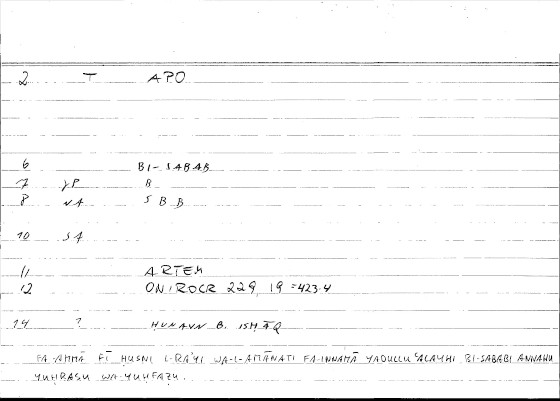 2 T APO
6 BI-SABAB
7 γP B
8 NA SBB
10 SA
11 ARTEM
12 ONIROCR 229, 19 = 423.4
14 ? ḤUNAYN B. ISḤĀQ
FA-AMMĀ FĪ ḤUSNI L-RA'YI WA-L-AMĀNATI FA-INNAMĀ YADULLU ʿALAYHI BI-SABABI ANNAHU
YUḤRASU WA-YUḤFAẒU.